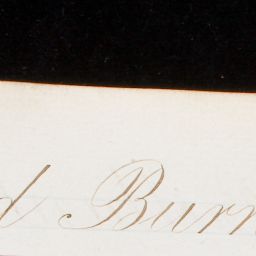 d Burr